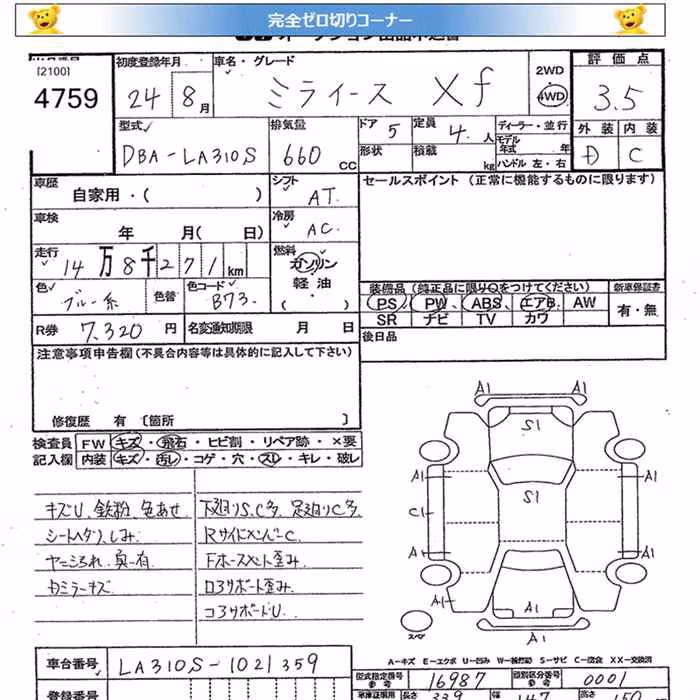 完全ゼロ切りコーナー
[2100]
4759
初度登録年月
24 8月
車名・グレード
ミライース Xf
2WD
4WD
評価点
3.5
外装 内装
D C
型式
DBA-LA310S
排気量
660 CC
ドア 5
定員 4 人
形状
積載 kg
ディーラー・並行
モデル年式 年
ハンドル 左・右
車歴
自家用・( )
シフト
AT
セールスポイント (正常に機能するものに限ります)
車検
年 月( 日)
冷房
AC
走行
14万8千271km
燃料
ガソリン
軽油
・( )
色
ブルー系
色替
色コード
B73
装備品 (純正品に限り○をつけてください)
PS PW ABS エアB AW
SR ナビ TV カワ
新車保証書
有・無
R券 7,320 円
名変通知期限 月 日
後日品
注意事項申告欄(不具合内容等は具体的に記入して下さい)
修復歴 有 〔箇所 〕
検査員
記入欄
FW キズ・飛石・ヒビ割・リペア跡・×要
内装 キズ・汚レ・コゲ・穴・スレ・キレ・破レ
キズU、鉄粉、色あせ
シートヘタリ、しみ
ヤニよごれ
カミラーキズ
下廻りS,C多、足廻りC多
RサイドメンバーC
Fホースメント歪み
ロアサポート歪み
コアサポートU
A1 A1
S1
A1 A1
S1
C1
A1 A1
A1
A1
A1
スペア
A-キズ E-エクボ U-凹み W-補修跡 S-サビ C-腐食 XX-交換済
車台番号
LA310S-1021359
登録番号
型式指定番号
参考
16987
類別区分番号
参考
0001
長さ 339
幅 147
高さ 150